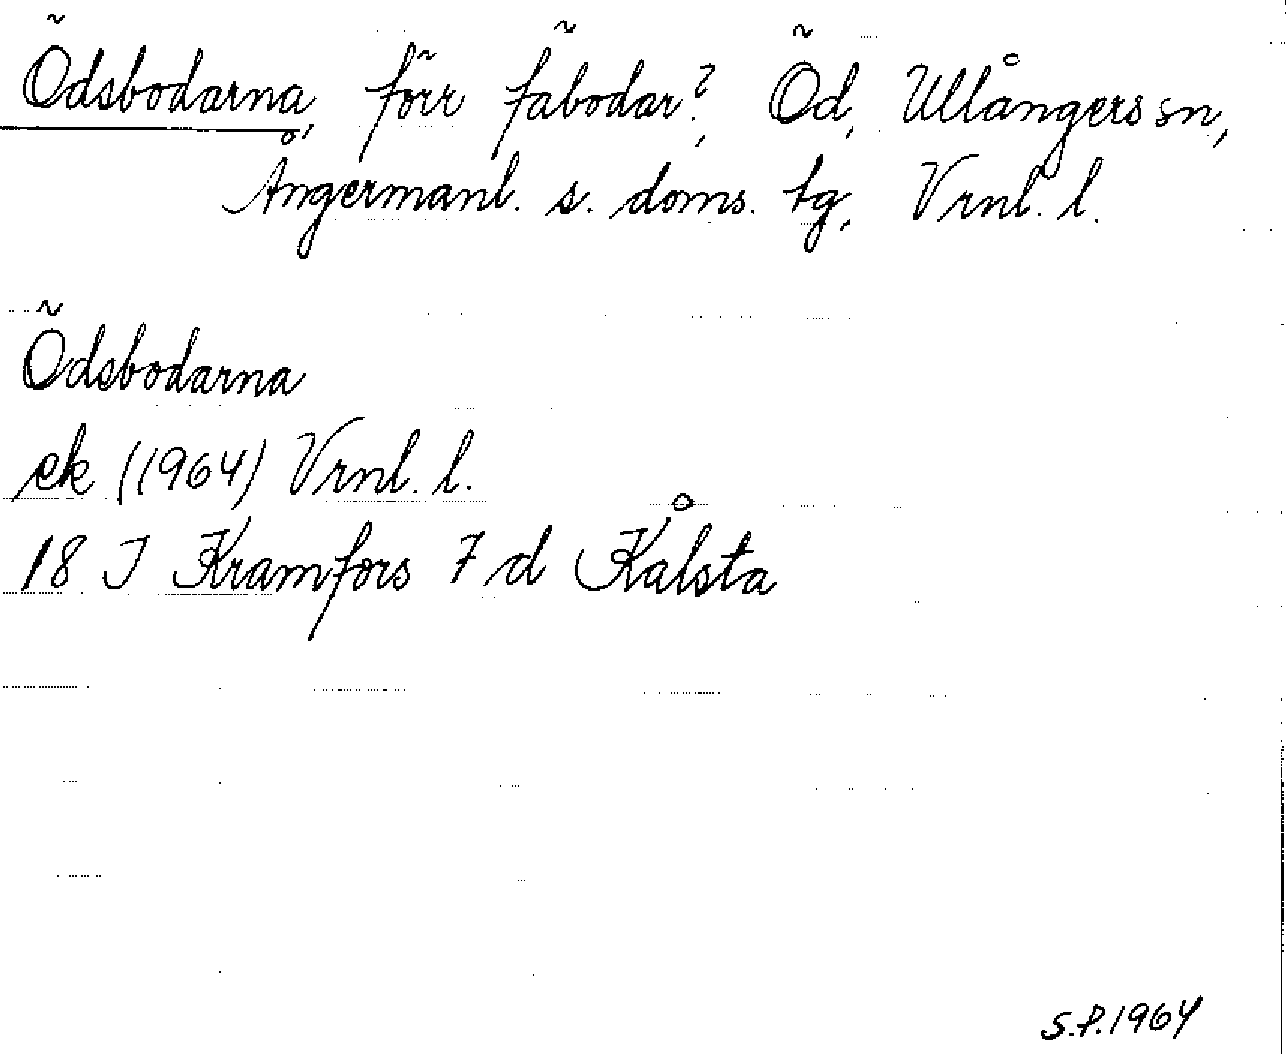 Ödsbodarna, förr fäbodar?, Öd, Ullångers sn,
Ångermanl. s. doms. tg, Vrnl. l.
Ödsbodarna
ek (1964) Vrnl. l.
18 J Kramfors 7 d Kålsta
S.P. 1964